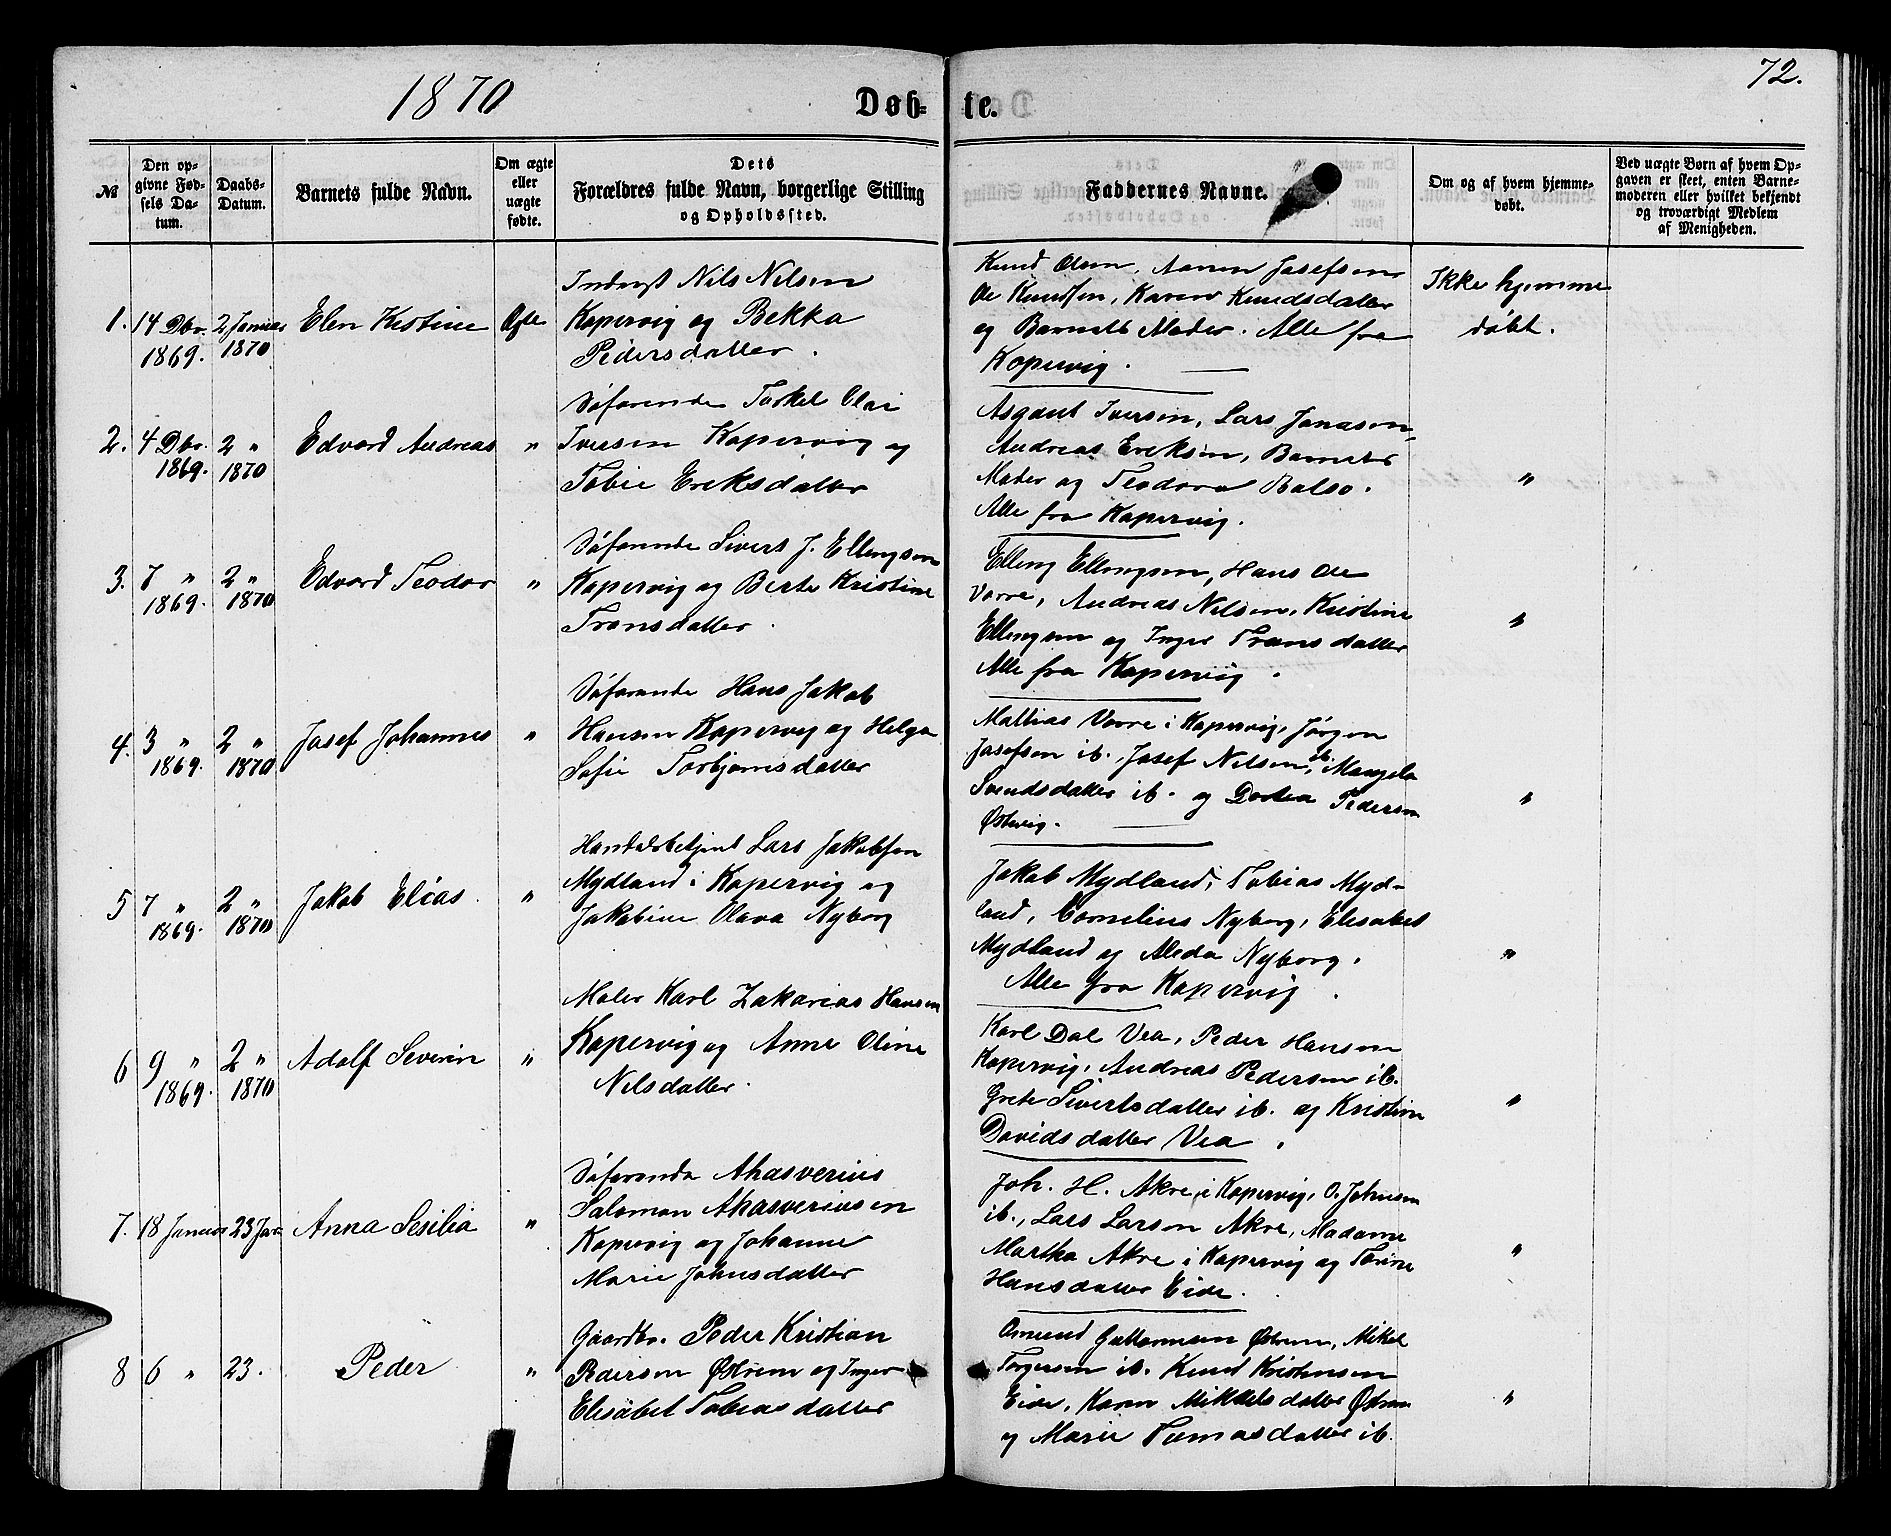 1870
Døb-
te.
72.
№
Den op-
givne Fød-
sels Da-
tum.
Daabs-
Datum.
Barnets fulde Navn.
Om ægte
eller
uægte
fødte.
Dets
Forældres fulde Navn, borgerlige Stilling
og Opholdssted.
Faddernes Navne.
Om og af hvem hjemme-
døbt.
Ved uægte Børn af hvem Op-
gaven er skeet, enten Barne-
moderen eller hvilket bekjendt
og troværdigt Medlem
af Menigheden.
1. 14 Dbr. 2 Januar Elen Kristine Ægte
1869. 1870
Nils Nilsen
Kopervig og Bekka
Pedersdatter.
Knud Olsen, Aanen Josefsen
Ole Knudsen, Karen Knudsdatter
og Barnets Moder. Alle fra
Kopervig.
Ikke hjemme
døbt.
2. 4 Dbr. 2 " Edvard Andreas "
1869. 1870
Søfarende Torkel Olai
Iversen Kopervig og
Tobie Eriksdatter
Asgaut Iversen, Lars Jonasen,
Andreas Eriksen, Barnets
Moder og Teodora Bolso.
Alle fra Kopervig.
"
3. 7 " 2 " Edvard Teodor "
1869. 1870
Søfarende Sivert J. Ellingsen
Kopervig og Berte Kristine
Transdatter.
Elling Ellingsen, Hans Ole
Vorre, Andreas Nilsen, Kristine
Ellingsen og Inger Transdatter
Alle fra Kopervig.
"
4. 3 " 2 " Josef Johannes "
1869. 1870
Søfarende Hans Jakob
Hansen Kopervig og Helga
Sofie Torbjørnsdatter
Mattias Vorre i Kopervig, Jørgen
Josefsen ib., Josef Nilsen ib., Mangela
Svendsdatter ib. og Dortea Pedersen
Østevig.
"
5 7 " 2 " Jakob Elias. "
1869. 1870
Handelsbetjent Lars Jakobsen
Mydland i Kopervig og
Jakobine Olava Nyborg
Jakob Mydland, Tobias Myd-
land, Cornelius Nyborg, Elisabet
Mydland og Aleda Nyborg.
Alle fra Kopervig.
"
6 9 " 2 " Adolf Severin "
1869. 1870
Maler Karl Zakarias Hansen
Kopervig og Anne Oline
Nilsdatter.
Karl Dal Vea, Peder Hansen
Kopervig, Andreas Pedersen ib.
Grete Sivertsdatter ib. og Kristine
Davidsdatter Vea.
"
7. 18 Januar 23 Jan Anna Sesilia "
Søfarende Ahasverius
Salomon Ahasveriusen
Kopervig og Johanne
Marie Johnsdatter
Joh. H. Akre i Kopervig, O. Johnsen
ib., Lars Larsen Akre, Madame
Martha Akre i Kopervig og Torine
Hansdatter Eide.
"
8 6 " 23. Peder "
Gaardbr. Peder Kristian
Pedersen Østrem og Inger
Elisabet Tobiasdatter
Omund Guttormsen Østrem, Mikel
Torgersen ib. Knud Kristensen
Eide, Karen Mikkelsdatter Østrem
og Marie Tomasdatter ib.
"